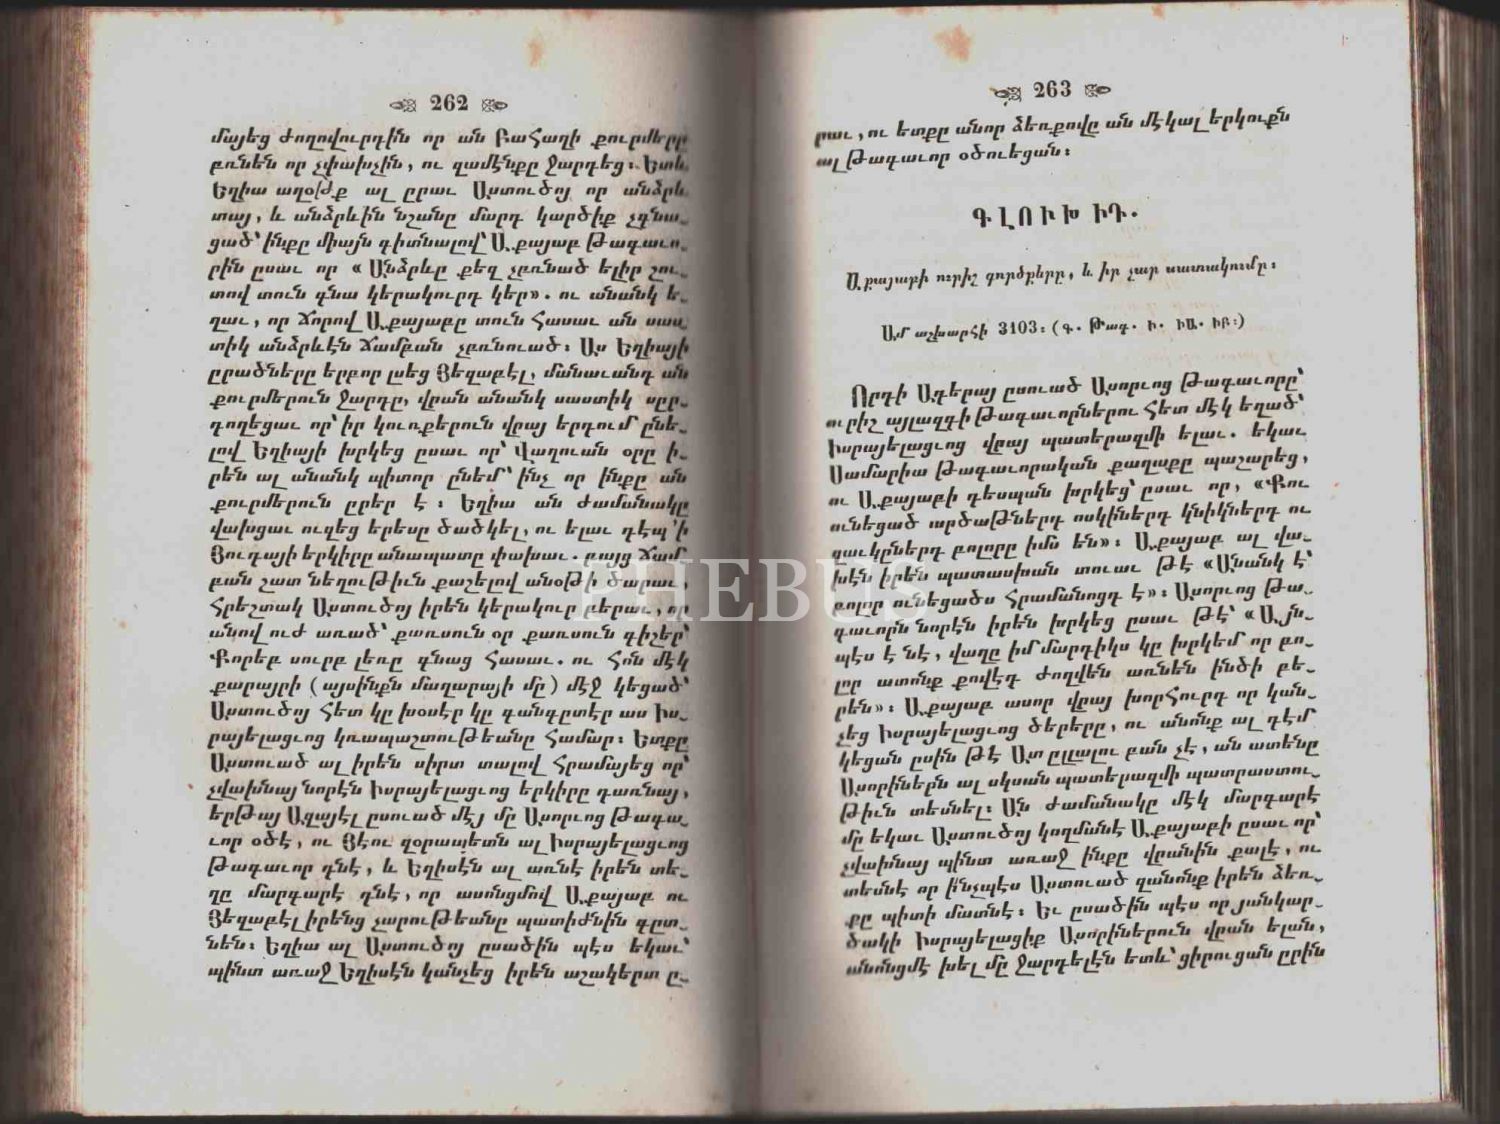 262
մայեց ժողովուրդին որ ան Բահաղի քուրմերը
բռնեն որ չփախչին, ու զամէնքը ջարդեց։ Ետև
Եղիա աղօթք ալ ըրաւ Աստուծոյ որ անձրև
տայ, և անձրևին նշանը մարդ կարծիք չգնա֊
ցած՝ ինքը միայն գիտնալով՝ Աքայաբ Թագաւո֊
րին ըսաւ որ « Անձրևը քեզ չբռնած ելիր շու֊
տով տուն գնա կերակուրդ կեր»․ ու անանկ ե֊
ղաւ, որ Ճորով Աքայաբը տուն հասաւ ան սաս֊
տիկ անձրևէն Ճամբան չբռնուած։ Աս Եղիայի
ըրածները երբոր լսեց Յեզաբէլ, մանաւանդ ան
քուրմերուն ջարդը, վրան անանկ սաստիկ սըր֊
դողեցաւ որ՝ իր կուռքերուն վրայ երդում ընե֊
լով Եղիայի խրկեց ըսաւ որ՝ Վաղուան օրը ի֊
րեն ալ անանկ պիտոր ընեմ՝ ինչ որ ինքը ան
քուրմերուն ըրեր է ։ Եղիա ան ժամանակը
վախցաւ ուզեց երեսը ծածկել, ու ելաւ դէպ ՚ի
Յուդայի երկիրը անապատը փախաւ․ բայց Ճամ֊
բան շատ նեղութիւն քաշելով անօթի ծարաւ,
Հրեշտակ Աստուծոյ իրեն կերակուր բերաւ, որ
անով ուժ առած՝ քառսուն օր քառսուն գիշեր՝
Քորեբ սուրբ լեռը գնաց հասաւ․ ու հոն մէկ
քարայրի (այսինքն մաղարայի մը) մէջ կեցած՝
Աստուծոյ հետ կը խօսէր կը գանգըտէր աս Իս֊
րայելացւոց կռապաշտութեանը համար։ Ետքը
Աստուած ալ իրեն սիրտ տալով հրամայեց որ՝
չվախնայ նորէն Իսրայելացւոց երկիրը դառնայ,
երթայ Ազայէլ ըսուած մէյ մը Ասորւոց Թագա֊
ւոր օծէ, ու Յէու զօրապետն ալ Իսրայելացւոց
Թագաւոր դնէ, և Եղիսէն ալ առնէ իրեն տե֊
ղը մարգարէ դնէ, որ ասոնցմով Աքայաբ ու
Յեզաբէլ իրենց չարութեանը պատիժնին գըտ֊
նեն։ Եղիա ալ Աստուծոյ ըսածին պէս եկաւ՝
պինտ առաջ Եղիսէն կանչեց իրեն աշակերտ ը֊
263
րաւ, ու ետքը անոր ձեռքովը ան մէկալ երկուքն
ալ Թագաւոր օծուեցան։
ԳԼՈՒԽ ԻԴ․
Աքայաբի ուրիշ գործքերը, և իր չար սատակումը։
Ամ աշխարհի 3103։ (գ․ Թագ․ Ի․ ԻԱ․ ԻԲ։)
Որդի Ադերայ ըսուած Ասորւոց Թագաւորը՝
ուրիշ այլազգի Թագաւորներու հետ մէկ եղած՝
Իսրայելացւոց վրայ պատերազմի ելաւ․ եկաւ
Սամարիա Թագաւորական քաղաքը պաշարեց,
ու Աքայաբի դեսպան խրկեց՝ ըսաւ որ, «Քու
ունեցած արծաթներդ ոսկիներդ կնիկներդ ու
զաւկըներդ բոլորը իմն են»։ Աքայաբ ալ վա֊
խէն իրեն պատասխան տուաւ թէ «Անանկ է՝
բոլոր ունեցածս հրամանոցդ է»։ Ասորւոց Թա֊
գաւորն նորէն իրեն խրկեց ըսաւ թէ՝ «Այն֊
պէս է նէ, վաղը իմ մարդիկս կը խրկեմ որ բո֊
լոր ատոնք քովէդ ժողվեն առնեն ինծի բե֊
րեն»։ Աքայաբ ասոր վրայ խորհուրդ որ կան֊
չեց Իսրայելացւոց ծերերը, ու անոնք ալ դէմ
կեցան ըսին թէ Ատ ըլլալու բան չէ, ան ատենը
Ասորիներն ալ սկսան պատերազմի պատրաստու֊
թիւն տեսնել։ Ան ժամանակը մէկ մարգարէ
մը եկաւ Աստուծոյ կողմանէ Աքայաբի ըսաւ որ՝
չվախնայ պինտ առաջ ինքը վրանին քալէ, ու
տեսնէ որ ինչպէս Աստուած զանոնք իրեն ձեռ֊
քը պիտի մատնէ։ Եւ ըսածին պէս որ յանկար֊
ծակի Իսրայելացիք Ասորիներուն վրան ելան,
անոնցմէ խել մը ջարդելէն ետև՝ ցիրուցան ըրին
PHEBUS